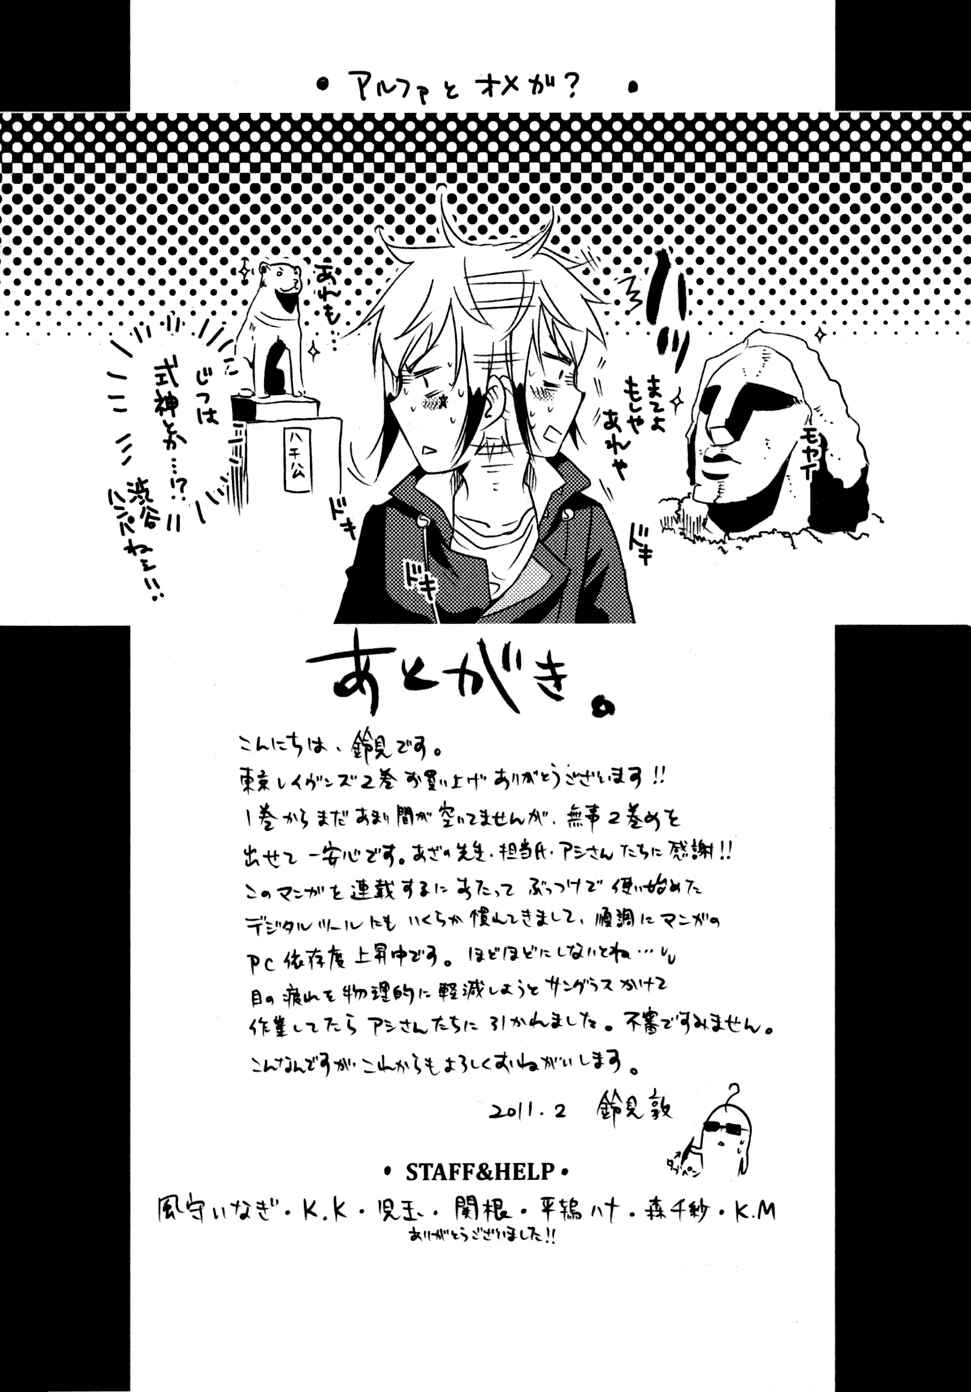 ・アルファとオメガ?・
ハッ
まてよ
もしや
あれや
モヤイ
あれも…
じつは
式神とか…!?
渋谷
ハンパねェ!!
ハチ公
ドキ
ドキ
ドキ
あとがき。
こんにちは、鈴見です。
東京レイヴンズ2巻お買い上げありがとうございます!!
1巻からまだあまり間が空いてませんが、無事2巻めを
出せて一安心です。あざの先生・担当氏・アシさんたちに感謝!!
このマンガを連載するにあたってぶっつけで使い始めた
デジタルツールにもいくらか慣れてきまして、順調にマンガの
PC依存度上昇中です。ほどほどにしないとね…
目の疲れを物理的に軽減しようとサングラスかけて
作業してたらアシさんたちに引かれました。不審ですみません。
こんなんですがこれからもよろしくおねがいします。
2011.2 鈴見敦
タブペン
・STAFF&HELP・
風守いなぎ・K.K・児玉・関根・平鴇ハナ・森千紗・K.M
ありがとうございました!!